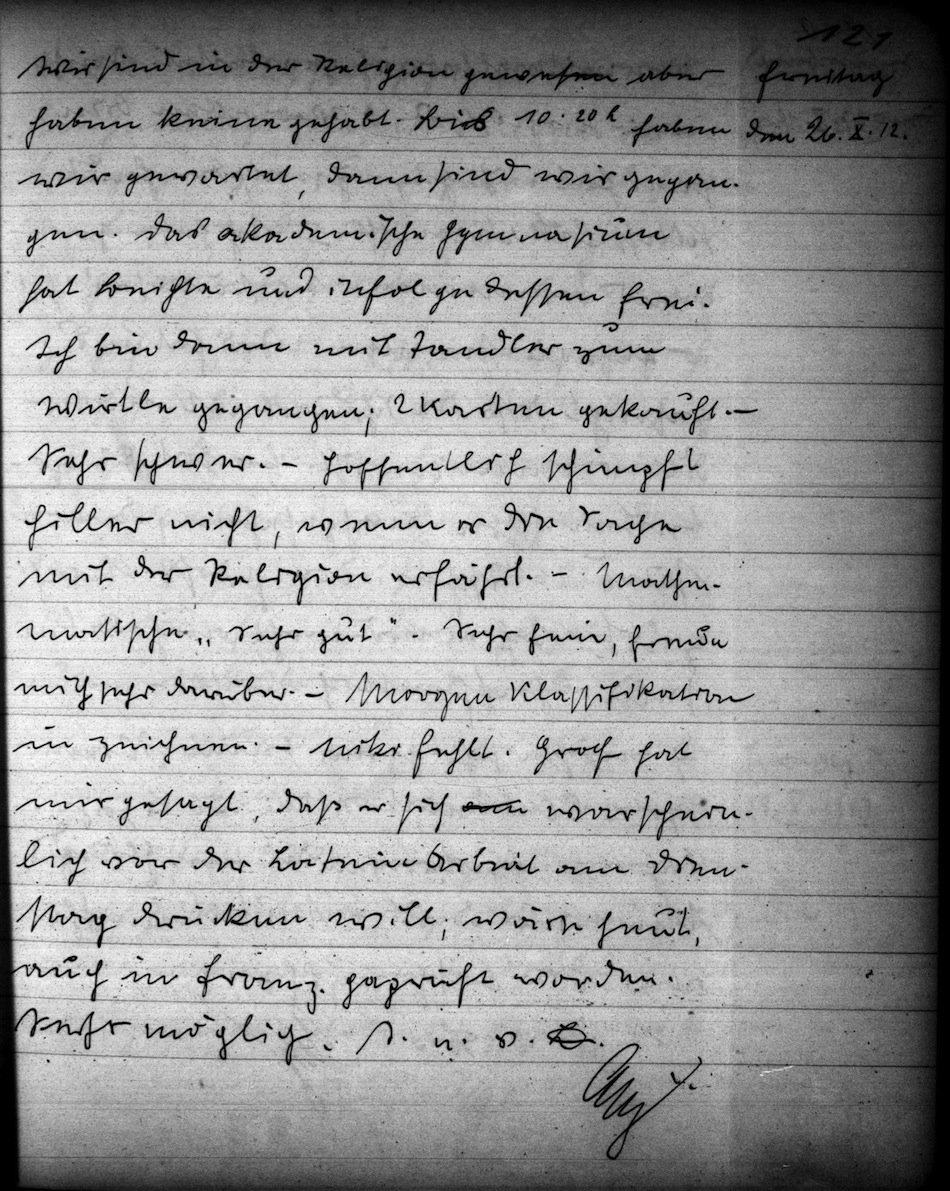 121
Wir sind in der Religion gewesen aber
Freitag
haben keine gehabt. Bis 10.20 h haben
den 26. X. 12.
wir gewartet, dann sind wir gegan-
gen. Das akademische Gymnasium
hat Beichte und infolge dessen frei.
Ich bin dann mit Tandler zum
Wirtle gegangen; 2 Karten gekauft. –
Sehr schwer. – Hoffentlich schimpft
Hiller nicht, wenn er die Sache
mit der Religion erfährt. – Mathe-
matische „Sehr gut". Sehr fein, freue
mich sehr darüber. – Morgen Klassifikation
in zeichnen. – Niki fehlt. Groß hat
mir gesagt, daß er sich warschein-
lich vor der Latein Arbeit am Dien-
stag drücken will; wäre heut,
auch in Franz. geprüft worden.
Sehr möglich. S. u. v.